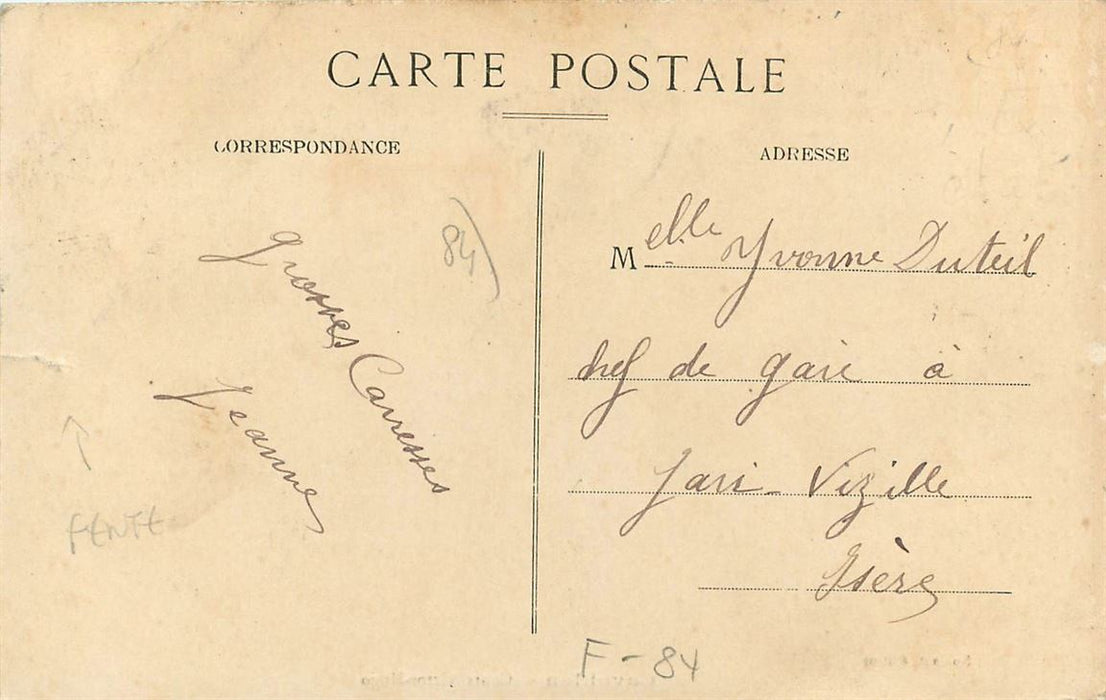 CARTE POSTALE
CORRESPONDANCE
grosses Carresses
Jeanne
84
FENTE
ADRESSE
Melle Yvonne Duteil
chef de gare à
Jari - Vizille
Isère
F - 84